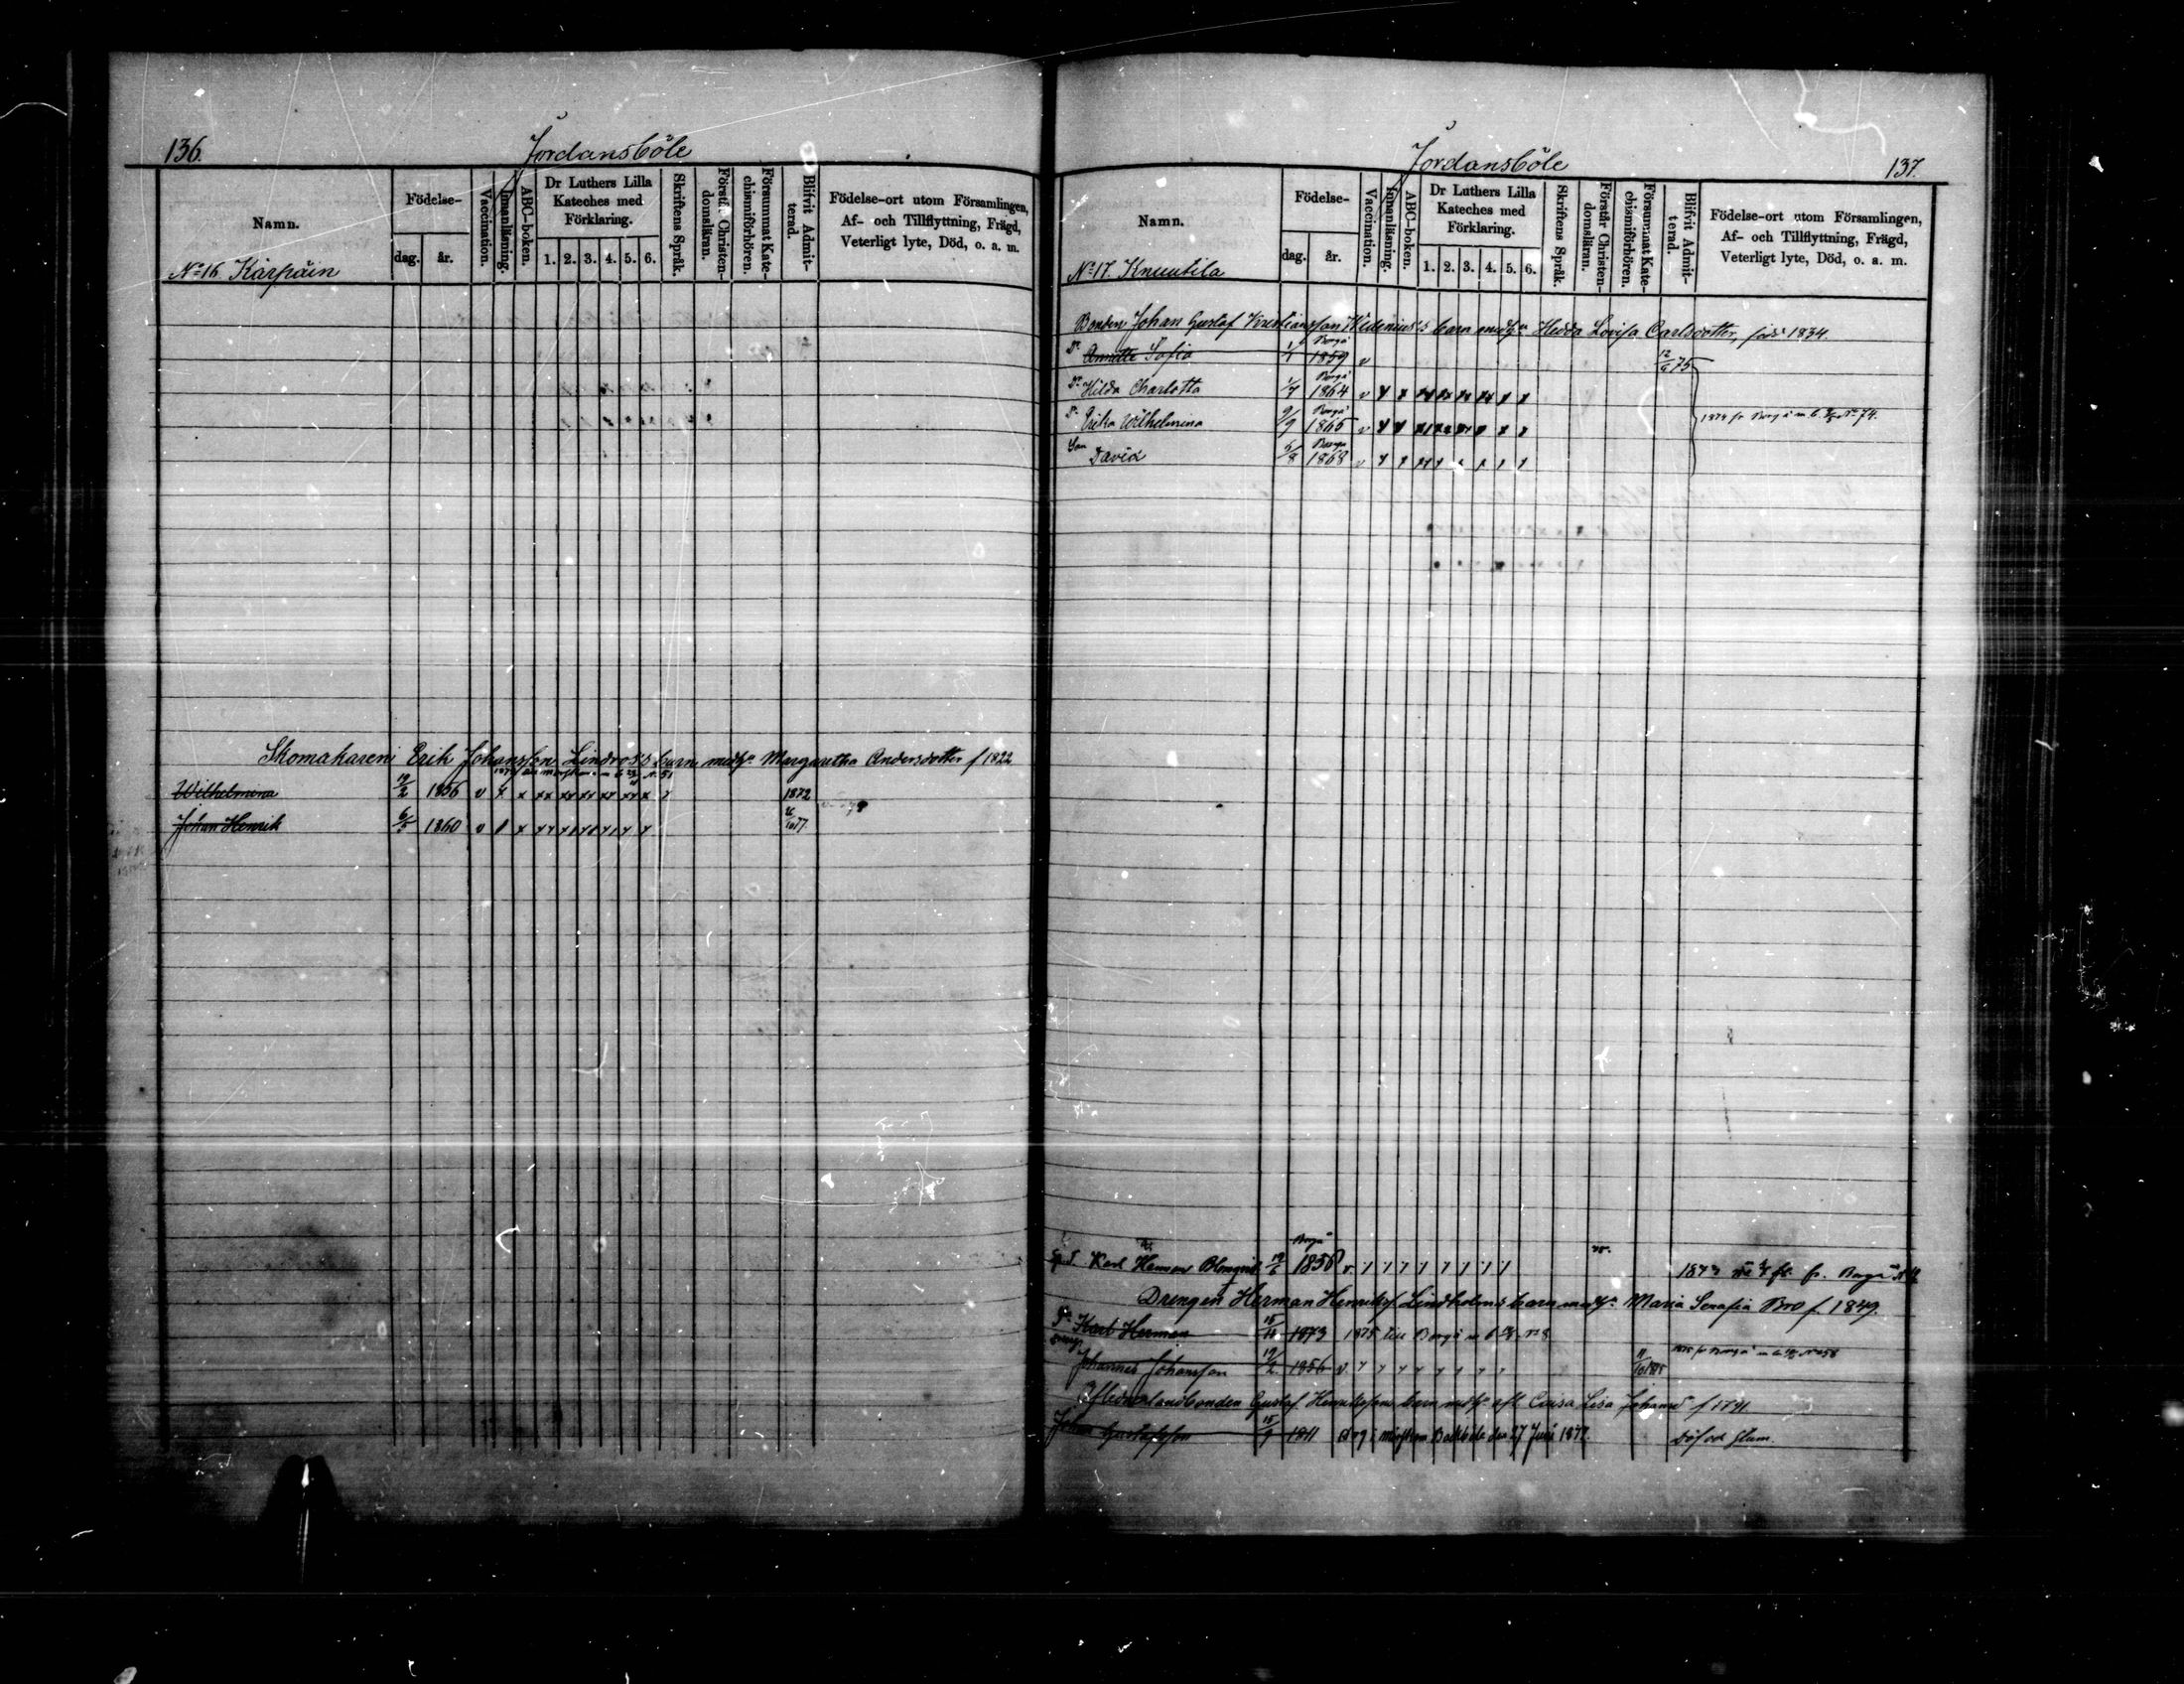 136.
Jordansböle
Namn.
Födelse-
dag.
år.
Vaccination.
Innanläsning.
ABC-boken.
Dr Luthers Lilla Kateches med Förklaring.
1. 2. 3. 4. 5. 6.
Skriftens Språk.
Förstår Christen-domsläran.
Försummat Kate-chismiförhören.
Blifvit Admit-terad.
Födelse-ort utom Församlingen,
Af- och Tillflyttning, Frägd,
Veterligt lyte, Död, o. a. m.
No 16. Kärpäin
Skomakaren Erik Johansson Lindros's barn med h. Margaretha Andersdotter f 1822
Wilhelmina 19/2 1856 v 1872
Johan Henrik 6/5 1860 v
Jordansböle
137.
Namn.
Födelse-
dag.
år.
Vaccination.
Innanläsning.
ABC-boken.
Dr Luthers Lilla Kateches med Förklaring.
1. 2. 3. 4. 5. 6.
Skriftens Språk.
Förstår Christen-domsläran.
Försummat Kate-chismiförhören.
Blifvit Admit-terad.
Födelse-ort utom Församlingen,
Af- och Tillflyttning, Frägd,
Veterligt lyte, Död, o. a. m.
No 17. Knuutila
Bonden Johan Gustaf Kristiansson Widenius's barn med h. Hedda Lovisa Carlsdotter, född 1834.
Dr Annette Sofia 1/1 Borgå 1859 v 12/6 75
Dr Hilda Charlotta 1/7 Borgå 1864 v
Dr Erika Wilhelmina 9/9 Borgå 1865 v 1874 fr. Borgå
Son David 6/8 Borgå 1868 v
Karl Herman Blomqvist 19/6 Borgå 1858 v. fr. Borgå
Drengen Herman Henrikss. Lindholms barn med h. Maria Serafia Bro f 1849.
Karl Herman 1873 1875 till Borgå
Johannes Johansson 19/2 1856 v.
Landbonden Gustaf Henrikssons barn med h. Caisa Lisa f 1791
Johan Gustafsson 15/9 1811 den 27 Juni 1877 Döf och stum.